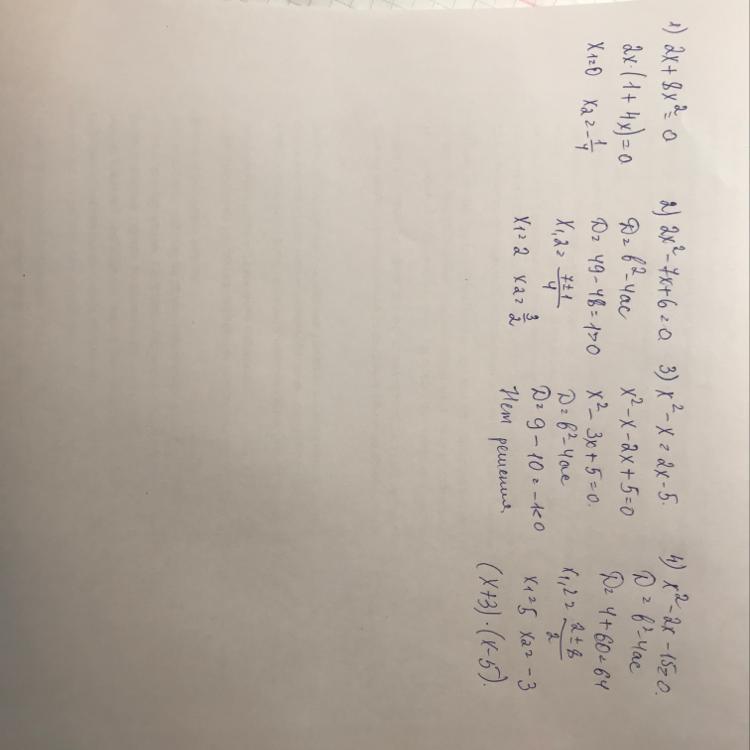 1) 2x + 8x² = 0
2x·(1 + 4x) = 0
x1=0 x2 = -1/4
2) 2x² - 7x + 6 = 0
D = b² - 4ac
D = 49 - 48 = 1>0
x1,2 = 7±1/4
x1 = 2 x2 = 3/2
3) x² - x = 2x - 5.
x² - x - 2x + 5 = 0
x² - 3x + 5 = 0.
D = b² - 4ac
D = 9 - 10 = -1<0
Нет решения.
4) x² - 2x - 15 = 0.
D = b² - 4ac
D = 4 + 60 = 64
x1,2 = 2±8/2
x1 = 5 x2 = -3
(x+3)·(x-5).